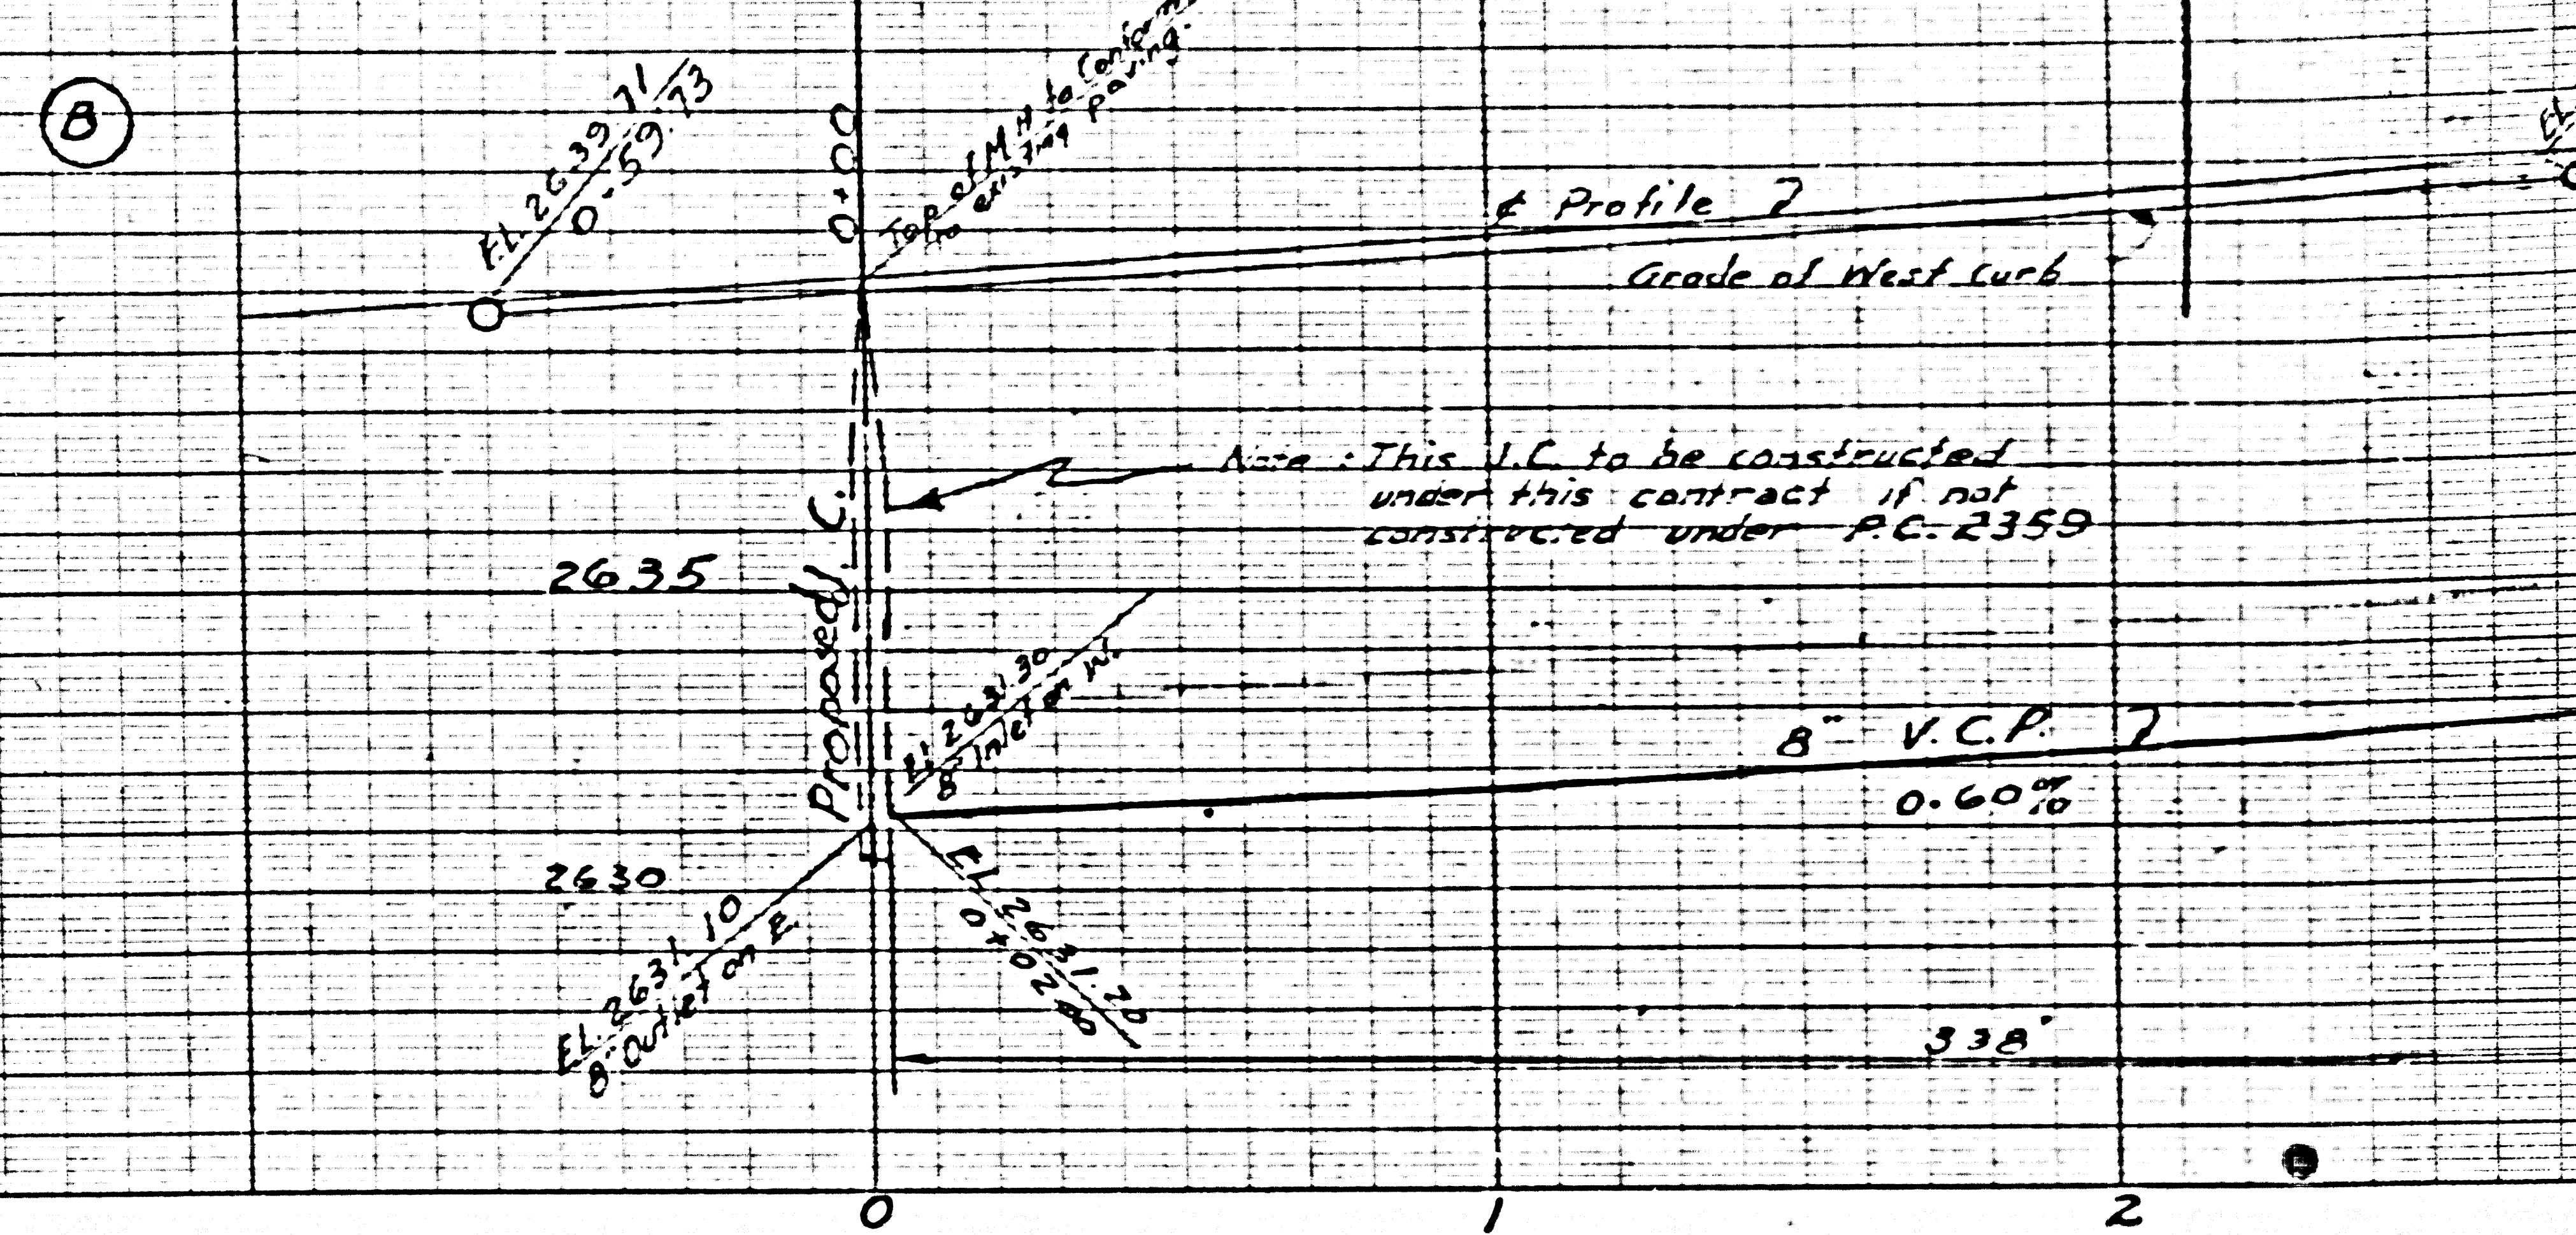 B
EL. 2639.71
0-59.73
0+00
Top of M H to conform
to existing paving.
₵ Profile
Grade of West Curb
EL.
Note : This J.C. to be constructed
under this contract if not
constructed under P.C. 2359
Proposed J.C.
2635
El. 2631.30
8" Inlet on W.
8" V.C.P.
0.60%
2630
EL. 2631.10
8" Outlet on E
EL. 2631.20
338'
0
1
2